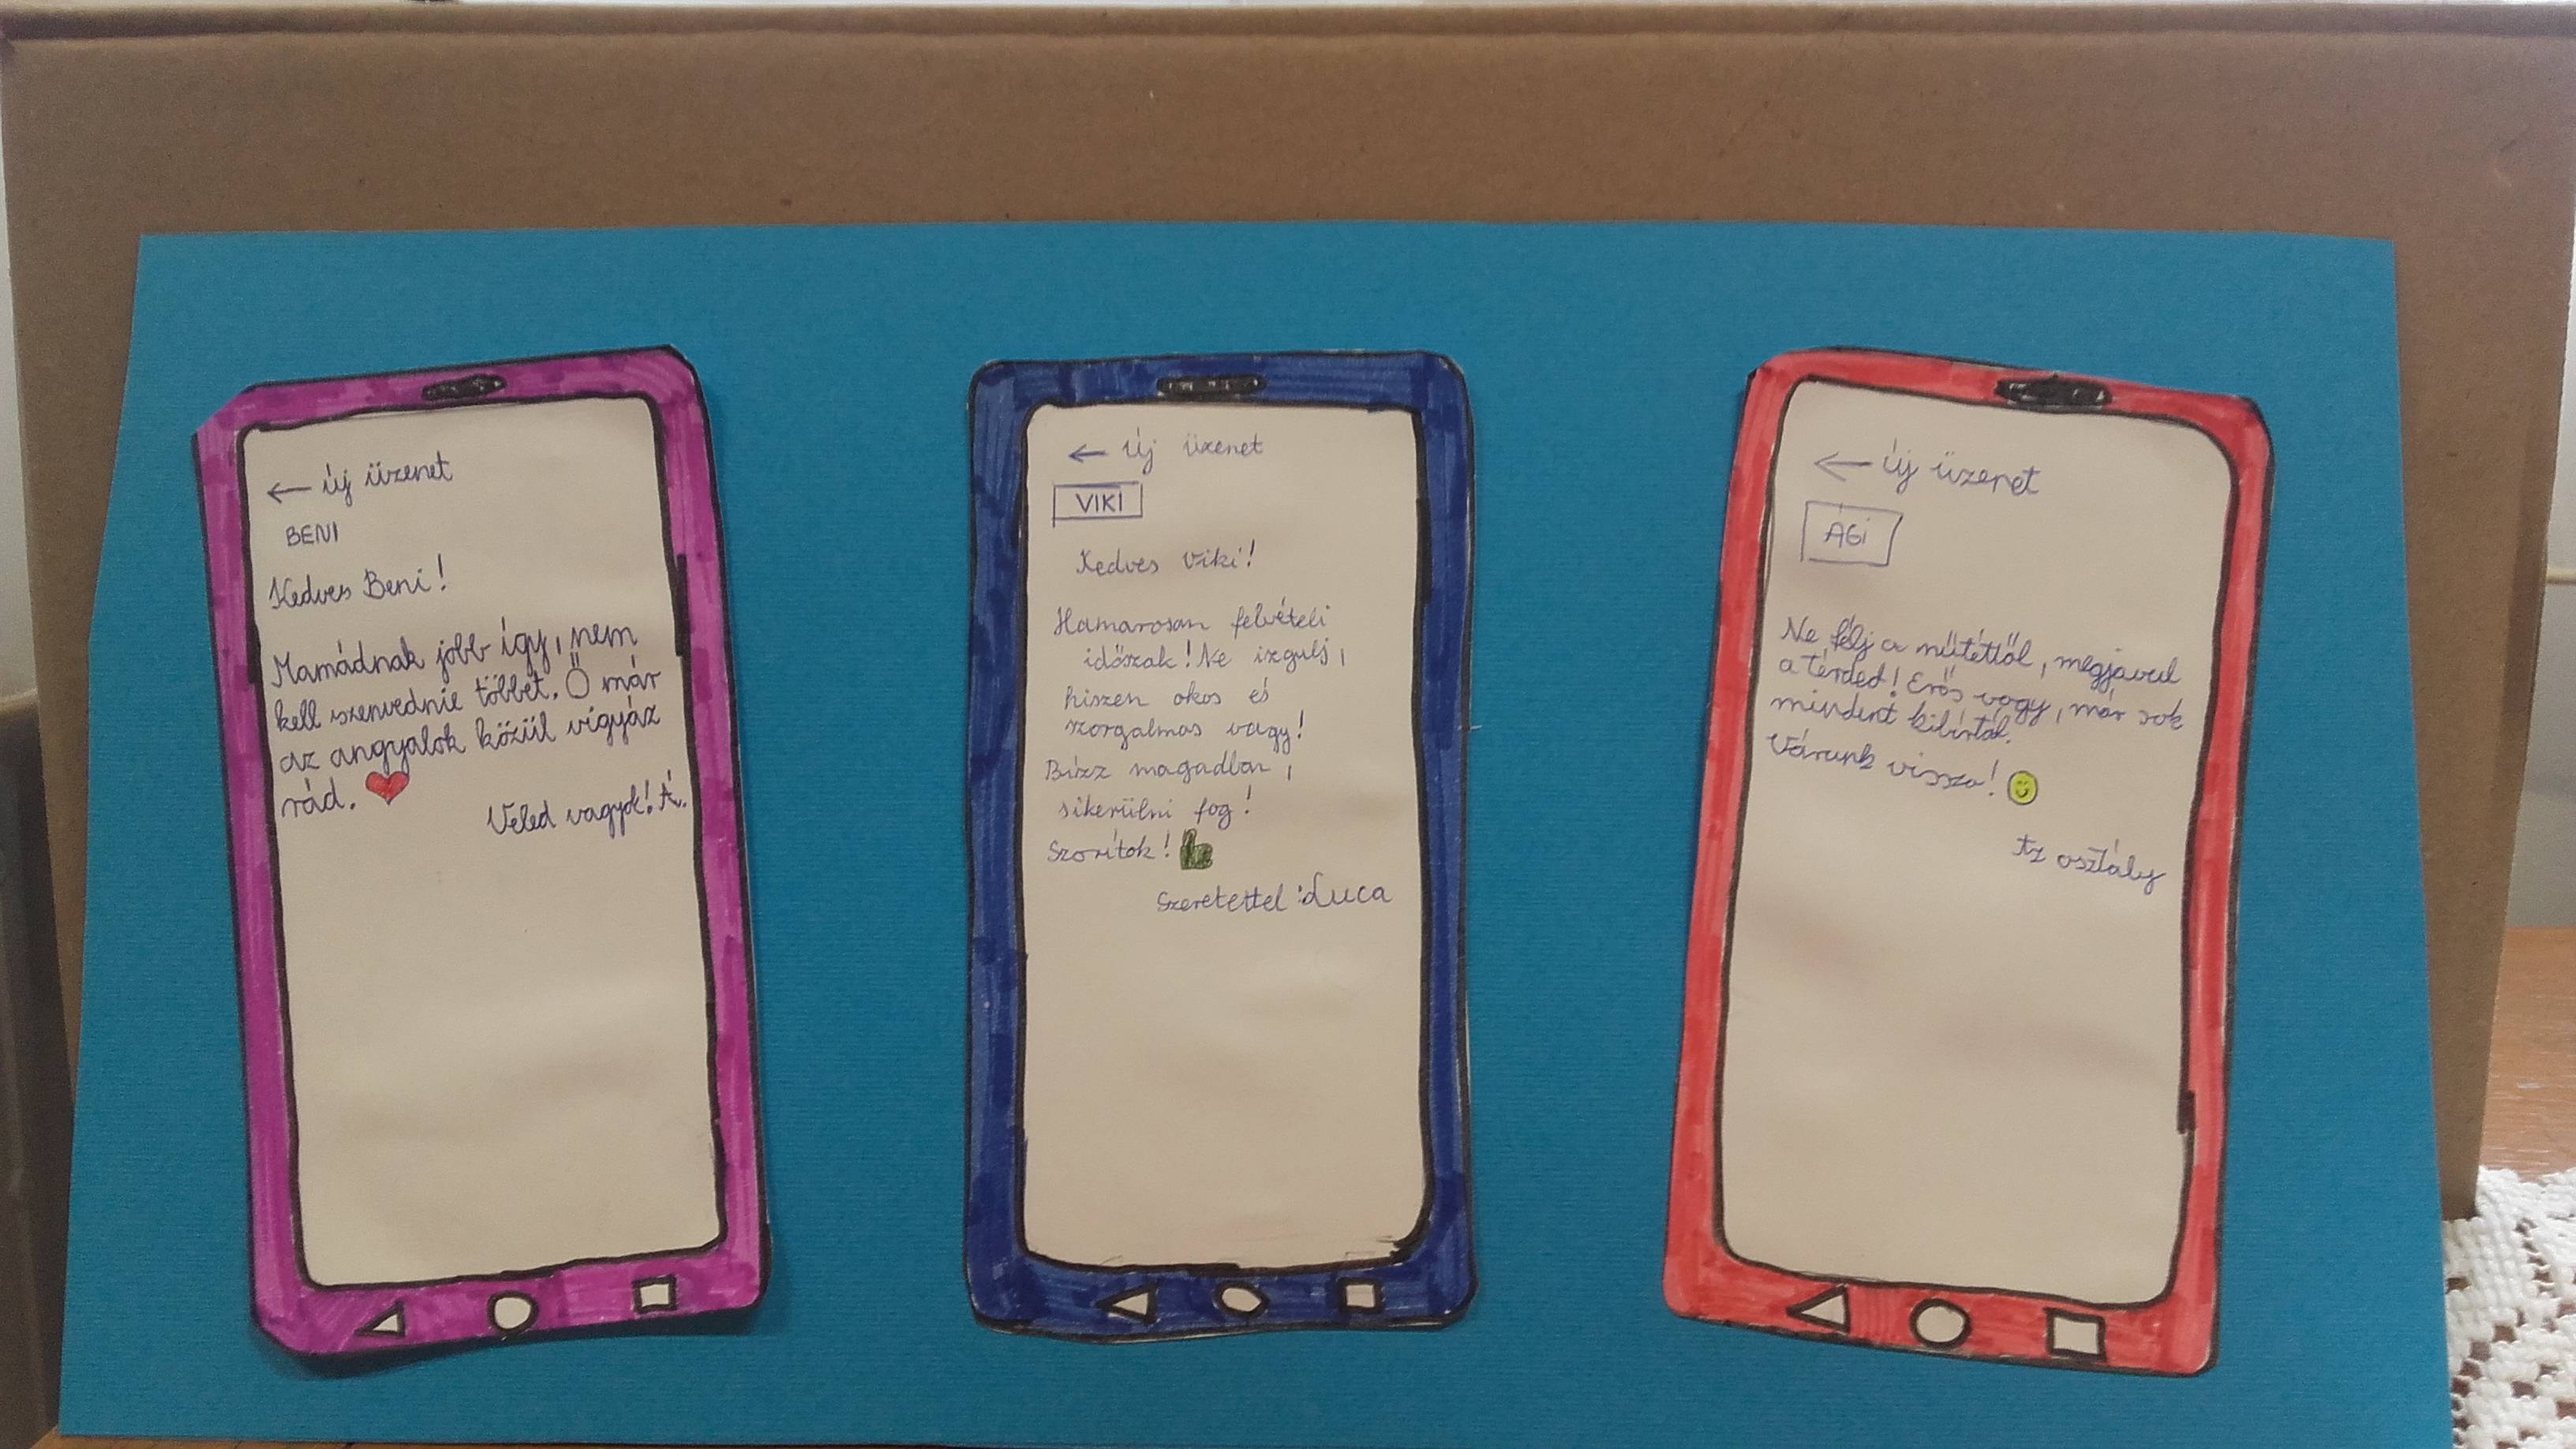 ← új üzenet
BENI
Kedves Beni!
Mamádnak jobb így, nem
kell szenvednie többet. Ő már
az angyalok közül vigyáz
rád.
Veled vagyok! Á.
← új üzenet
VIKI
Kedves Viki!
Hamarosan felvételi
időszak! Ne izgulj,
hiszen okos és
szorgalmas vagy!
Bízz magadban,
sikerülni fog!
Szorítok!
Szeretettel: Luca
← új üzenet
ÁGI
Ne félj a műtéttől, megjavul
a térded! Erős vagy, már sok
mindent kibírtál.
Várunk vissza!
Az osztály